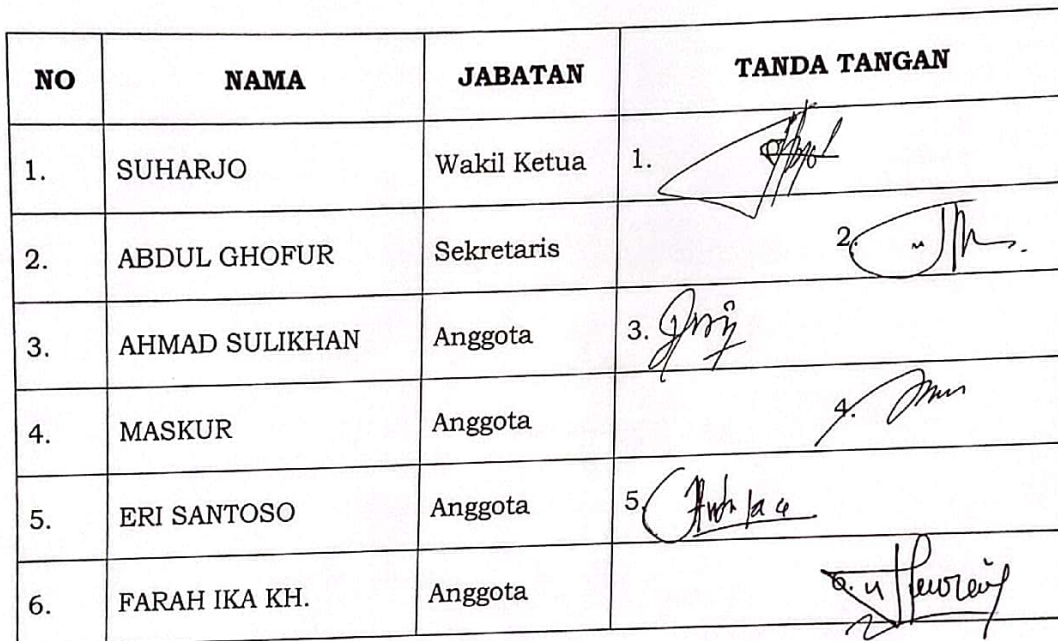 NO NAMA JABATAN TANDA TANGAN
1. SUHARJO Wakil Ketua 1.
2. ABDUL GHOFUR Sekretaris 2.
3. AHMAD SULIKHAN Anggota 3.
4. MASKUR Anggota 4.
5. ERI SANTOSO Anggota 5.
6. FARAH IKA KH. Anggota 6.